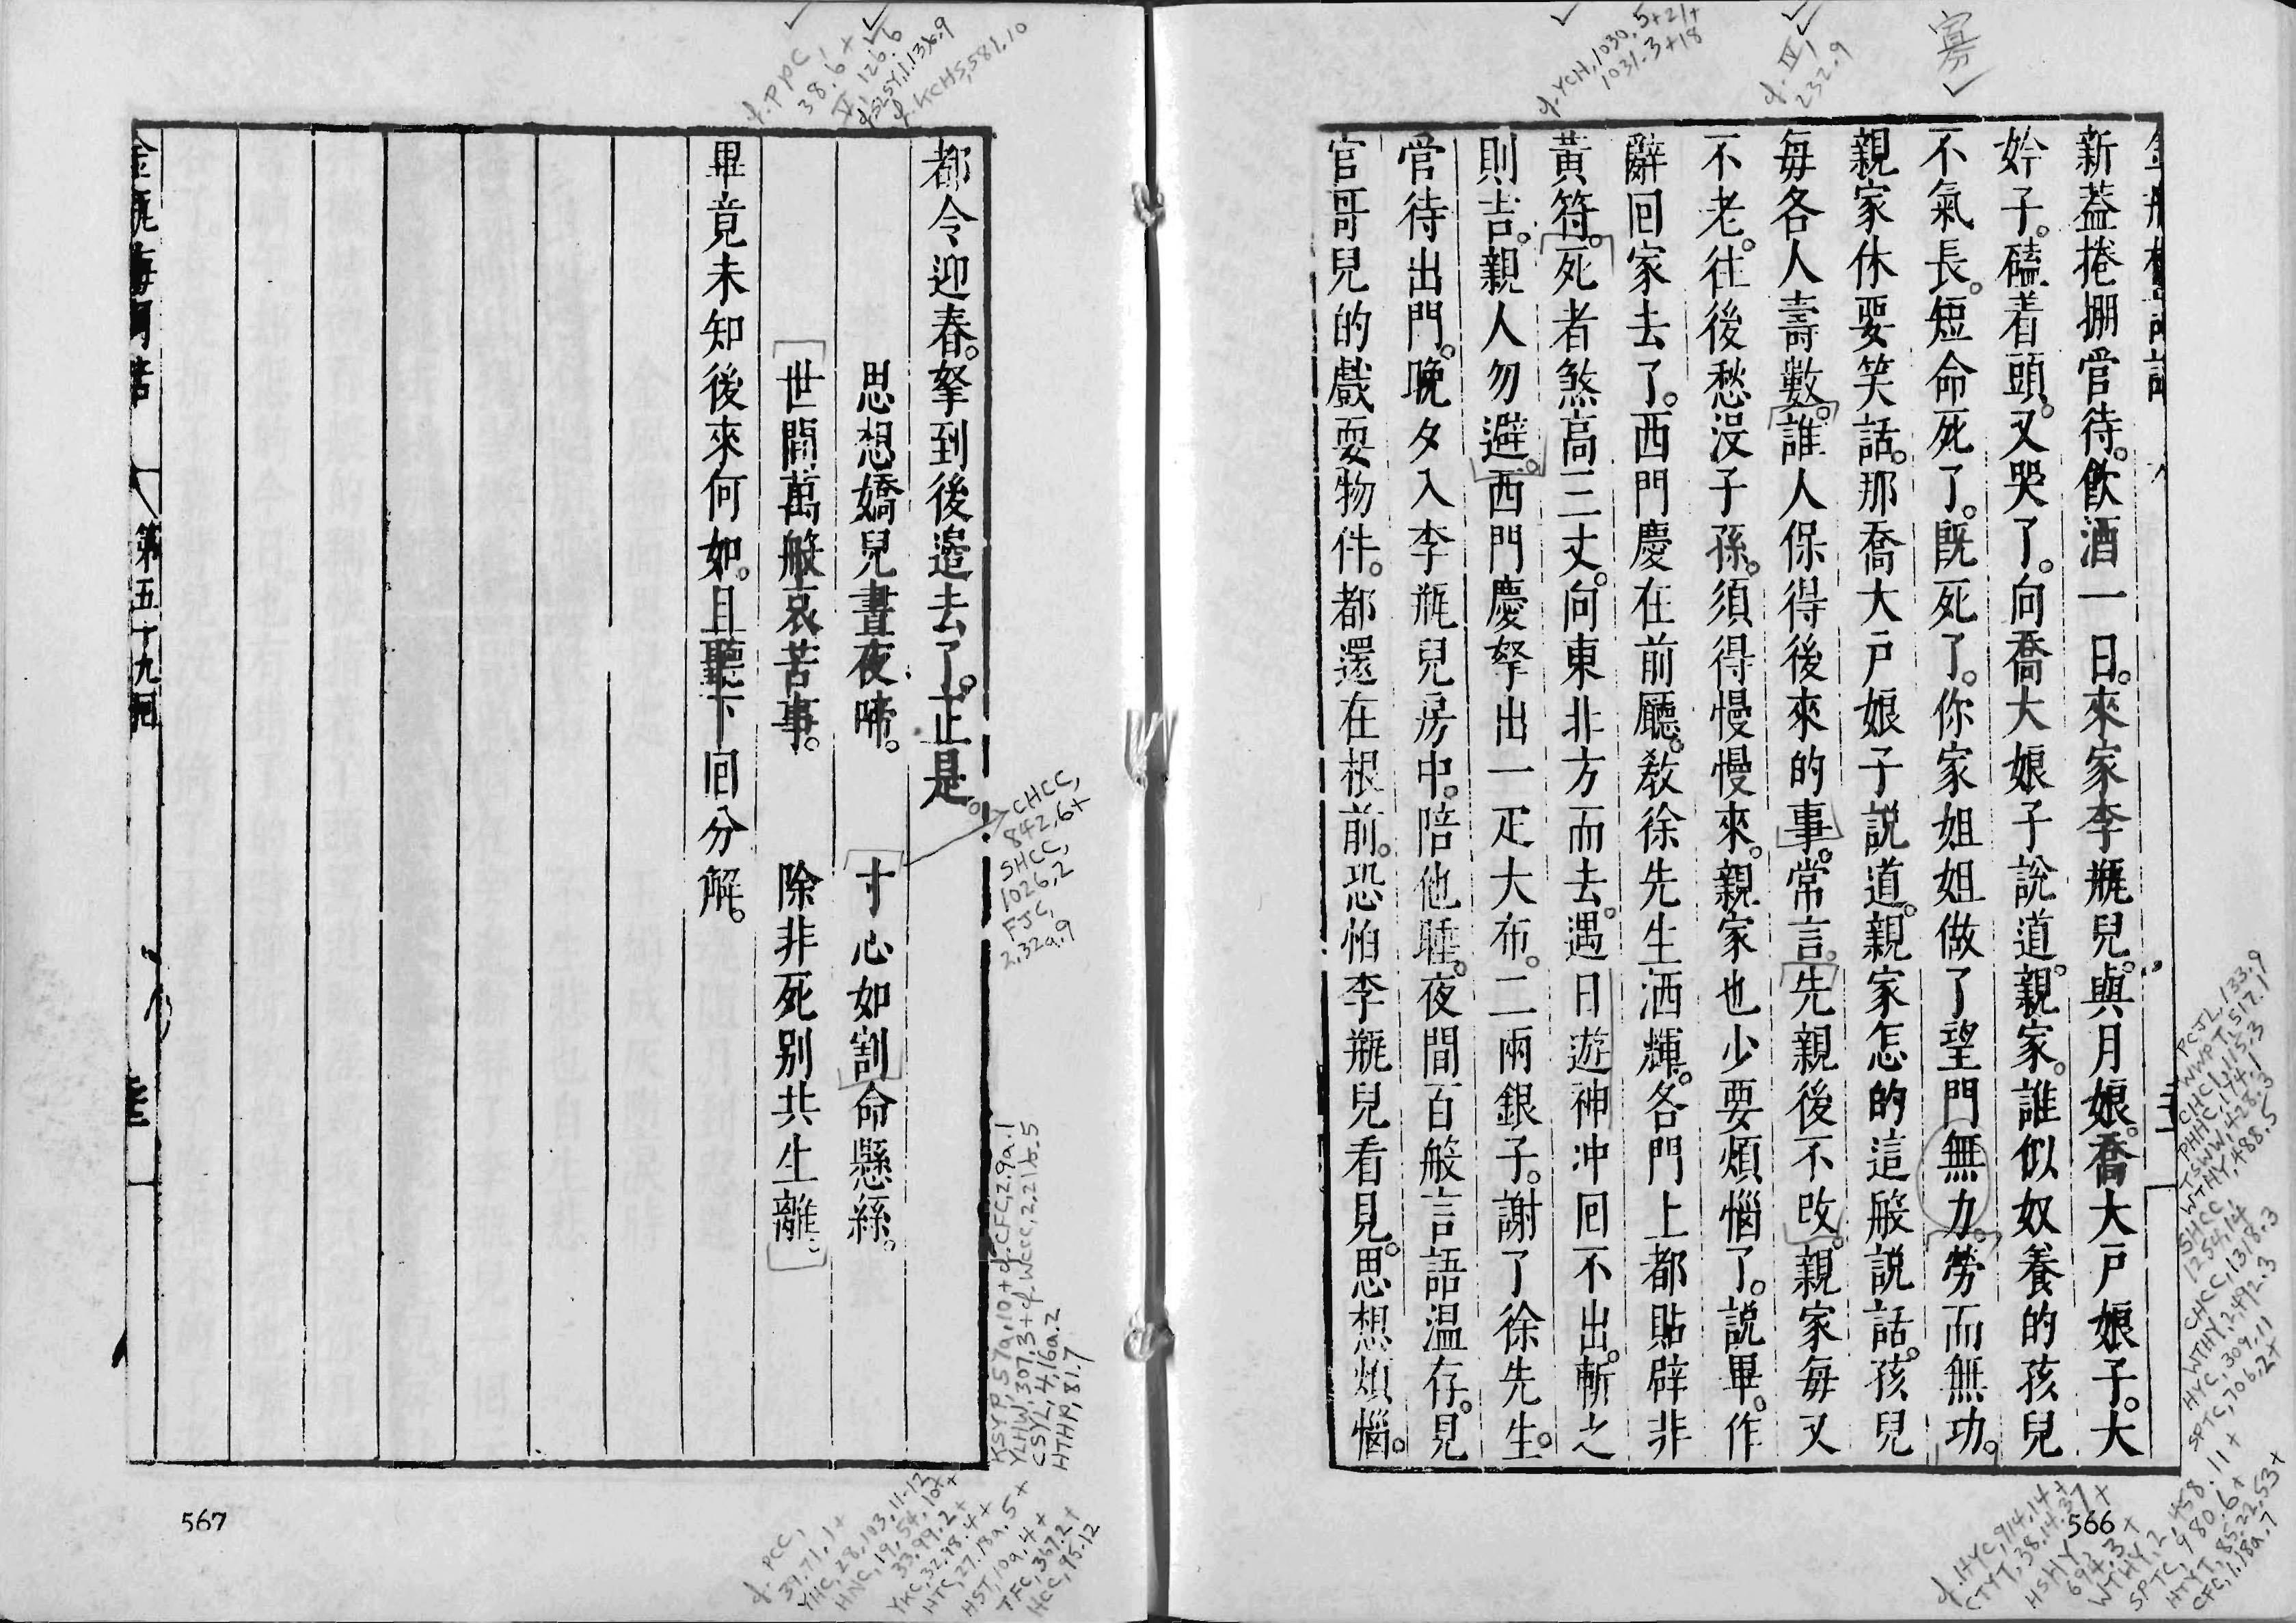 寡
cf. IV, 1
232.9
cf. YCH, 1030, 5+21+
1031.3+18
新蓋捲棚管待。飲酒一日。來家李瓶兒。與月娘。喬大戶娘子。大
妗子。磕着頭。又哭了。向喬大娘子說道。親家。誰似奴養的孩兒
不氣長。短命死了。既死了。你家姐姐做了望門無力。勞而無功。
親家休要笑話。那喬大戶娘子說道。親家怎的這般說話。孩兒
每各人壽數。誰人保得後來的事。常言。先親後不改。親家每又
不老。往後愁沒子孫。須得慢慢來。親家也少要煩惱了。說畢。作
辭回家去了。西門慶在前廳。敎徐先生洒輝。各門上都貼辟非
黃符。死者煞高三丈。向東北方而去。遇日遊神冲回不出。斬之
則吉。親人勿避。西門慶拏出一疋大布。二兩銀子。謝了徐先生。
管待出門。晚夕入李瓶兒房中。陪他睡。夜間百般言語温存。見
官哥兒的戲耍物件。都還在根前。恐怕李瓶兒看見。思想煩惱。
PCJL, 133.9
CWWPT, 517.1
CHCI, 115.3
PHHC, 174.1
TSWW, 428.3
WTHY, 488.5
SHCC,
1254.14
CHCC, 1318.3
WTHY, 2,492.3
HYC, 309.11
SPTC, 706.2+
cf. HYC, 914.14+
CTYT, 38.14.37+
HSHY,
694.3+
WTHY, 2,458.11+
SPTC, 980.6+
HTYT, 85.22.53+
CFC, 1.18a.7
566
cf. PPC,
38.6+
都令迎春。拏到後邊去了。正是。
思想嬌兒晝夜啼。 寸心如割命懸絲。
世間萬般哀苦事。 除非死别共生離。
畢竟未知後來何如。且聽下回分解。
金瓶梅詞話 第五十九回
CHCC,
842.6+
SHCC,
1026.2
FJC,
2.32a.9
KSYP, 57a.10+ cf. CFC, 2.9a.1
YLHW, 307.3+
CSYL, 4.16a.2
HTHP, 81.7
cf. PCC,
37.71.1+
YHC, 28.103.11-12
HNC, 19.54.10+
33.99.2+
YKC, 32.48.4+
HTC, 27.18a.5+
HST, 10a.4+
TFC, 367.2+
HCC, 95.12
567